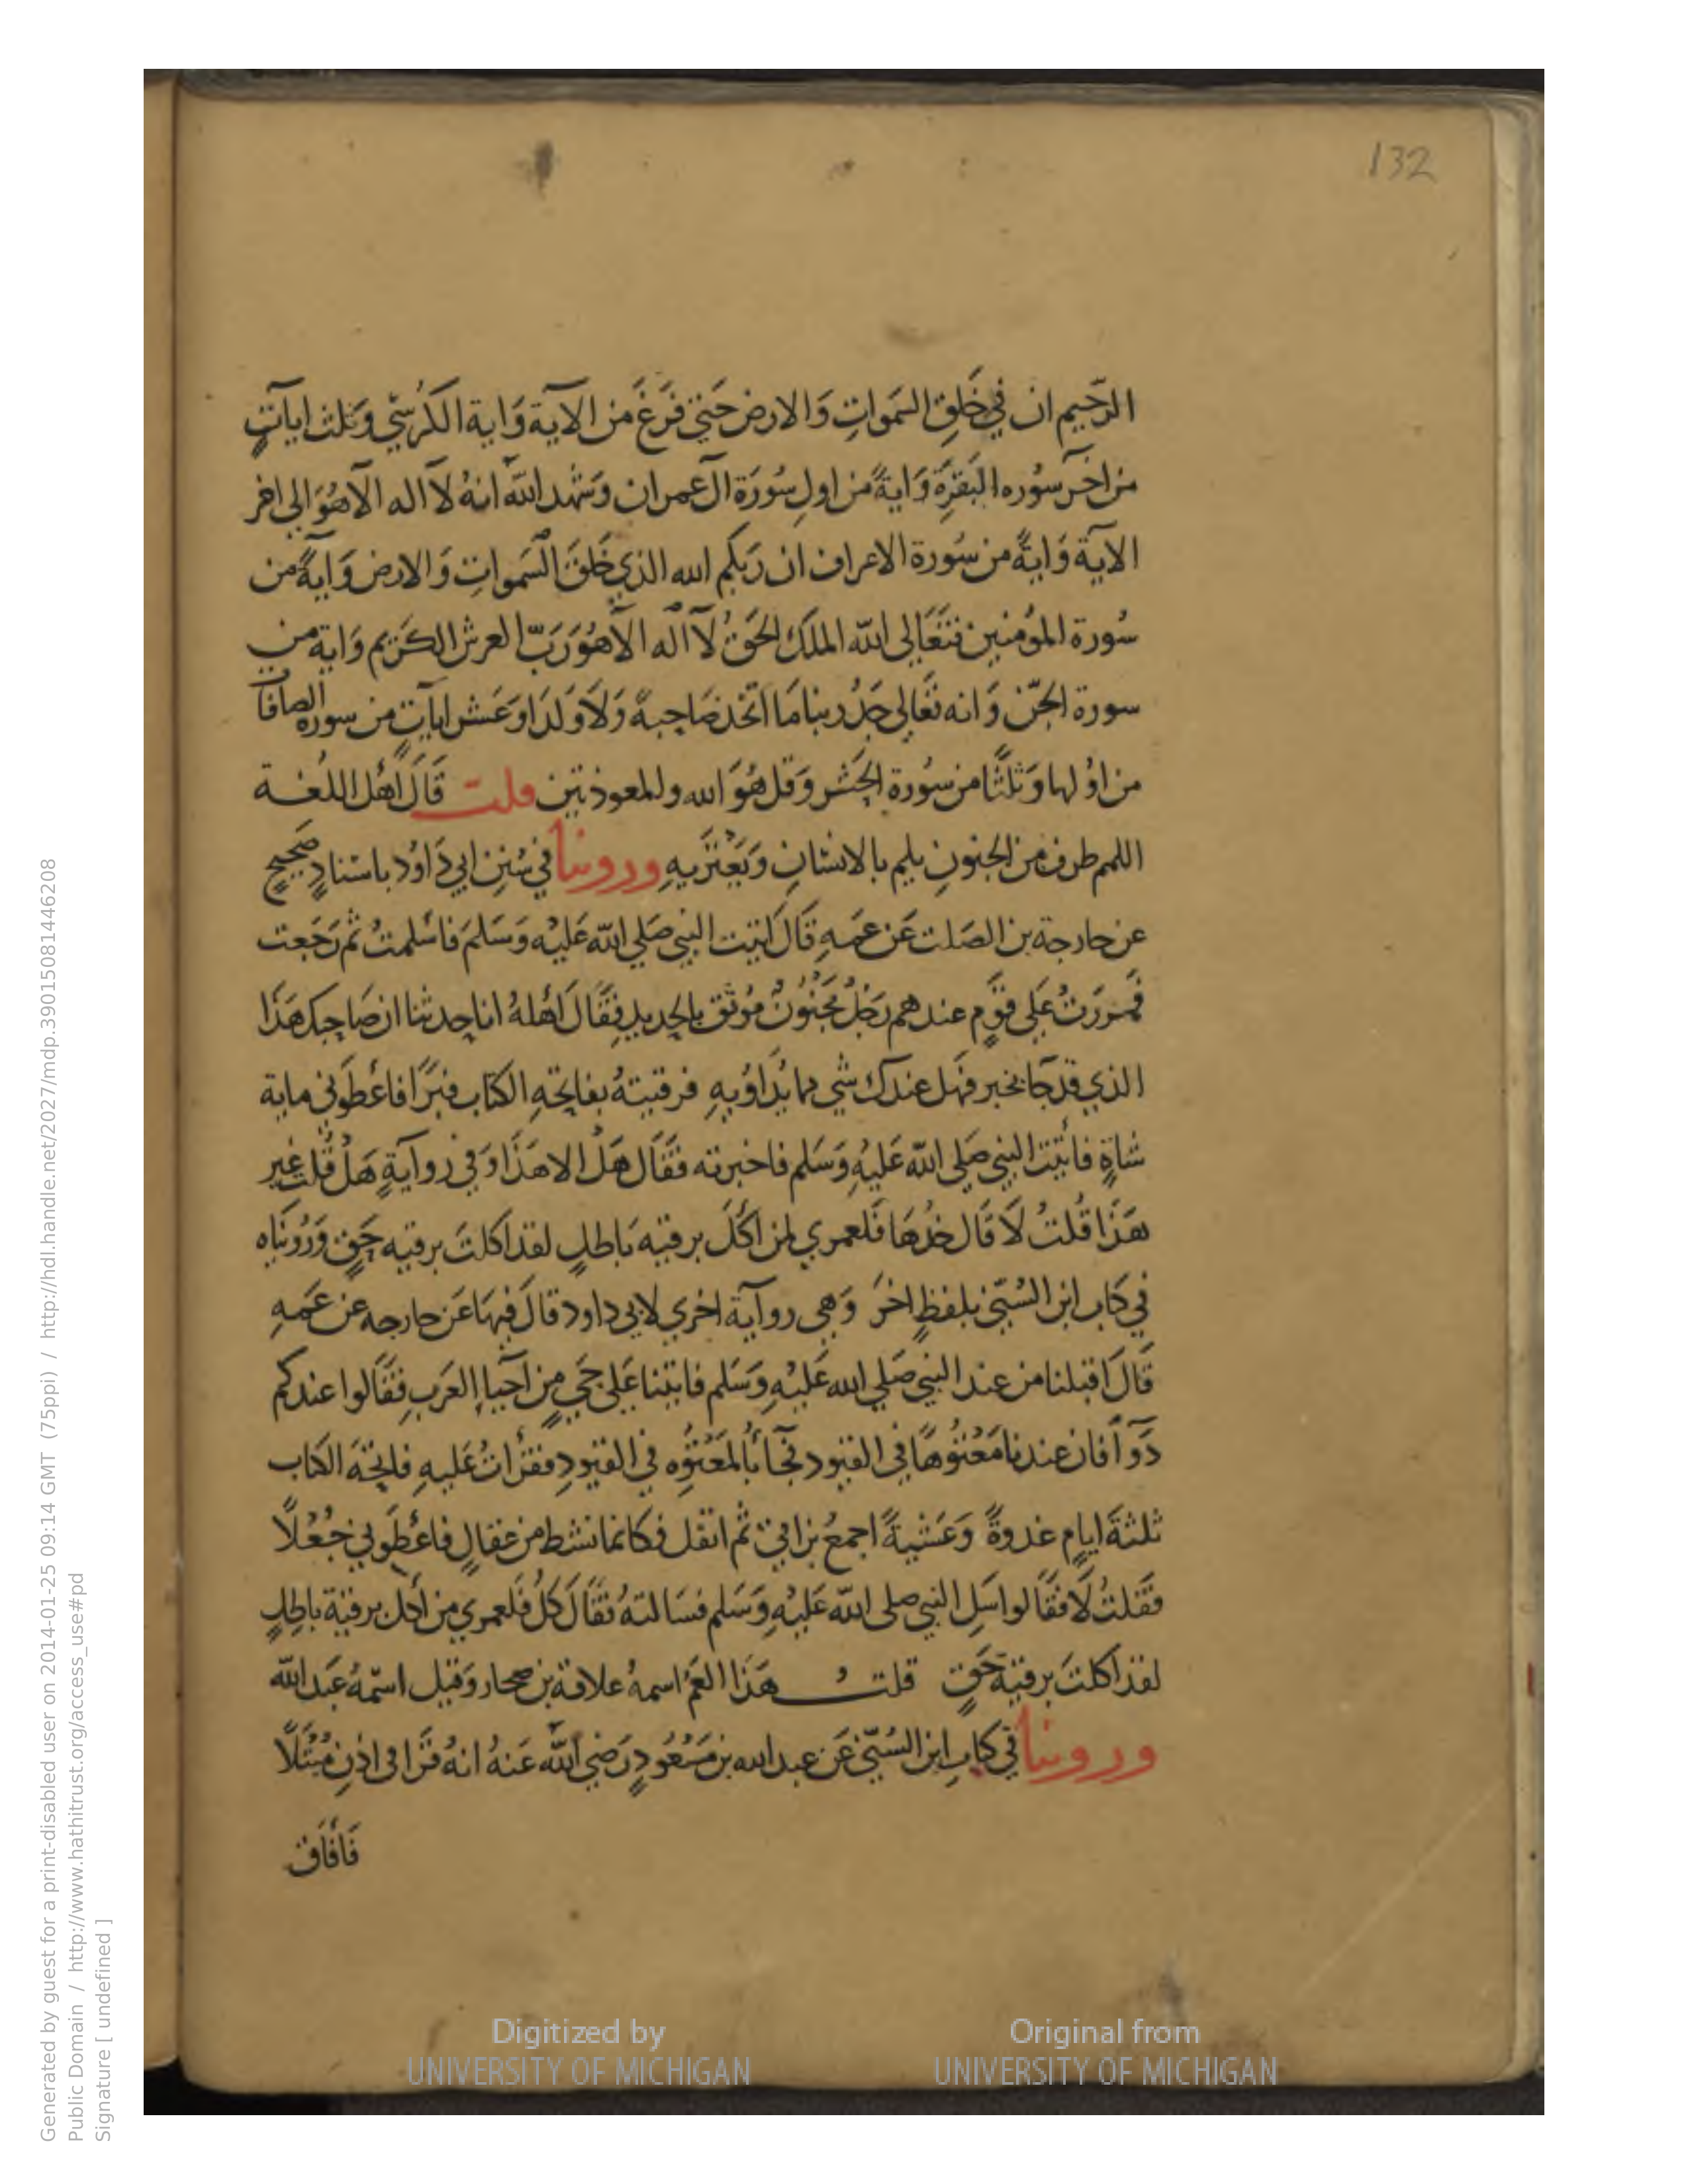 132
الرَّحيم ان في خَلقِ السَمَواتِ وَالارض حَتي فَرَغَ من الآية وَاية الكُرسيّ وَثلث اياتٍ
من اخر سُوره البَقرَة وَايةً من اولِ سُورَة آل عمران وَشهد الله انهُ لآ اله الآ هُوَ الى اخر
الاية وَايةً من سُورة الاعراف ان رَبكم الله الذي خَلقَ السَموات وَالارض وَآيةً من
سُورة المؤمنين فتعَالى الله الملك الحَقُ لآ اله الآ هُوَ رَبّ العرش الكَرَيم وَاية من
سورة الجّن وَانه تَعَالي جَدُ ربنا مَا اتَّخذ صَاحِبةً وَلاَ وَلدَا وَعَشر اياتٍ من سوره الصافات
من اوُلها وَثلثًا من سُورة الحَشر وَقل هُوَ الله والمعوذتين قلت قَالَ أهْل اللغـة
اللمم طرف من الجنونِ يلم بالانسَانِ وَيَعْتَريهِ وروينا في سُننِ ابي دَاوُد باسْنادٍ صَحِيحٍ
عن خارجة بن الصَلت عَن عَمهِ قَالَ اتيت النبي صَلي الله عَليْه وَسَلمَ فاسْلمتُ ثم رَجَعت
فمررَتُ عَلي قَوَمٍ عندهم رَجُلُ مجنُونٌ مُوثَق بالحديدِ فقَالَ أهْلهُ انا حدثنا ان صَاحبك هَذَا
الذي قد جَآ بخير فهَل عندك شي مما يُدَاوُيهِ فرقيتهُ بفاتحَهِ الكتاب فبَرَا فاعْطَوني ماية
شاةٍ فاتيْت النبي صَلي الله عَليْهِ وَسَلم فاخبرته فقَال هَل الا هذَا وَفي روآيةٍ هَلْ قُلت غير
هذَا قُلتُ لاَ قَال خُذهَا فَلعمري لمن اكَلَ برقيه بَاطلٍ لقد اكلتَ برقيه حَقٍ وَرُوينَاه
في كَاب ابن السُنّي بلفظٍ اخرَ وَهي روآية اخري لابي داود قالَ فيهَا عَن خارجه عن عَمهِ
قَالَ اقبلنا من عند النبي صَلي الله عَليْهِ وَسَلم فاتينا عَلي حَيٍ من آحيآ العَربِ فقَالوا عندكم
دَوآ فان عندنا مَعْتُوهًا في القيود فجَآ بُالمَعْتُوِه في القيودِ فقرَاتُ عَليهِ فاتحةَ الكاب
ثلثةَ ايامٍ غدوةً وَعَشيةً اجمعُ بزاقي ثم اتفل فكانما نشط من عقالٍ فاعْطَوني جُعْلاً
فقلتُ لاَ فقَالوا سَل النبي صلى الله عَليْهِ وَسَلم فسَالتهُ فقَالَ كلُ فَلعمري من أكل برقية باطلٍ
لقد اكلتَ برقية حَقٍ قلت هَذا العَمُ اسمهُ علاقة بن صحار وَقيل اسمهُ عَبد الله
وروينا في كتابِ ابن السُنّي عَن عبد الله بن مَسْعُودٍ رَضي الله عَنهُ انهُ قرَا في اذن مُبْتَلًا
فَأفَاق
Digitized by
UNIVERSITY OF MICHIGAN
Original from
UNIVERSITY OF MICHIGAN
Generated by guest for a print-disabled user on 2014-01-25 09:14 GMT (75ppi) / http://hdl.handle.net/2027/mdp.39015081446208
Public Domain / http://www.hathitrust.org/access_use#pd
Signature [ undefined ]